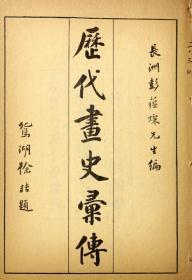 長洲彭蘊燦先生編
歷代畫史彙傳
鴛湖徐
題